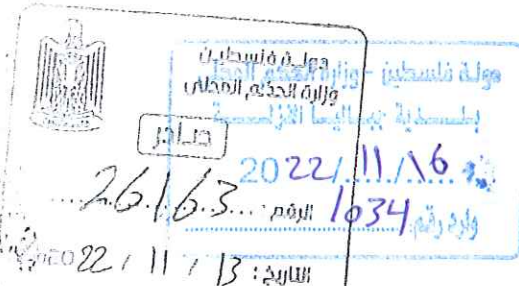 دولة فلسطين
وزارة الحكم المحلي
صادر
الرقم: 26163
التاريخ: 13 / 11 / 2022
دولة فلسطين - وزارة الحكم المحلي
2022/11/16
وارد رقم: 1034